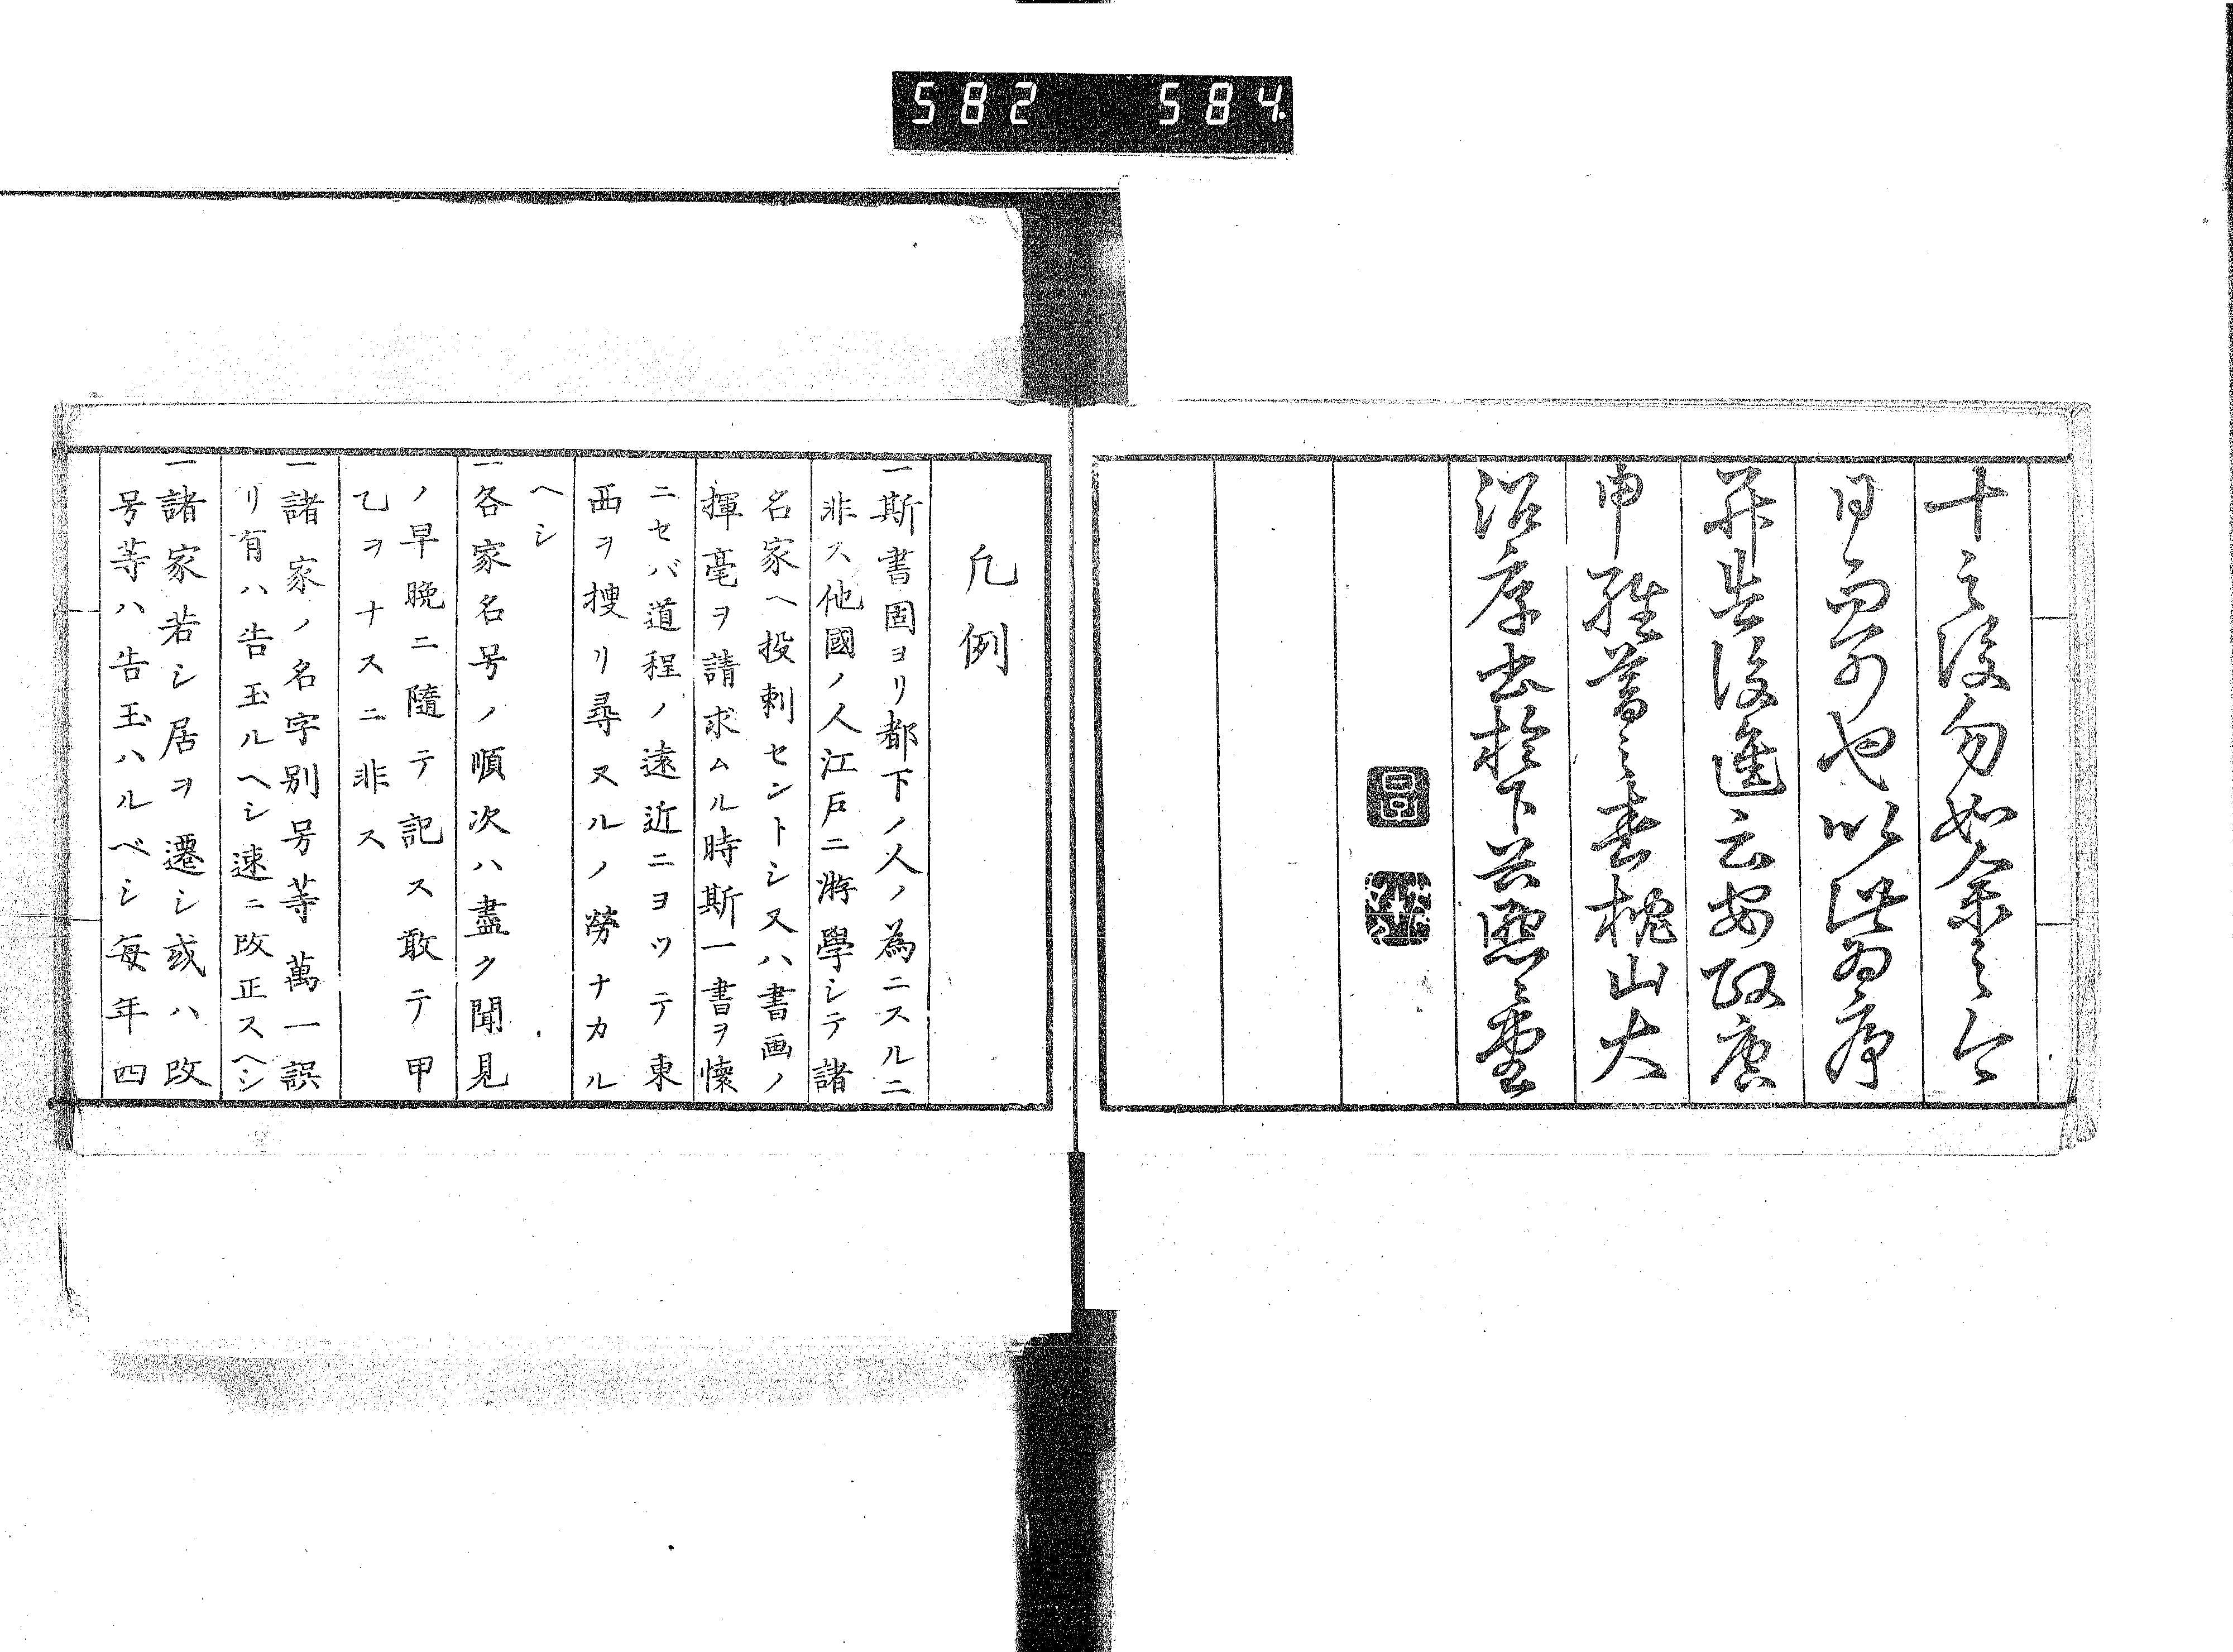 582 584
十之後勿如余之今
日而可也以此為序
并告後進云安政庚
申種蓄之春槐山大
沼厚書於下谷
凡例
一斯書固ヨリ都下ノ人ノ為ニスルニ
非ス他國ノ人江戸ニ游學シテ諸
名家ヘ投刺セントシ又ハ書画ノ
揮毫ヲ請求ムル時斯一書ヲ懐
ニセバ道程ノ遠近ニヨツテ東
西ヲ捜リ尋ヌルノ勞ナカル
ヘシ
一各家名号ノ順次ハ盡ク聞見
ノ早晩ニ隨テ記ス敢テ甲
乙ヲナスニ非ス
一諸家ノ名字别号等萬一誤
リ有ハ告玉ルヘシ速ニ改正スヘシ
一諸家若シ居ヲ遷シ或ハ改
号等ハ告玉ハルベシ毎年四